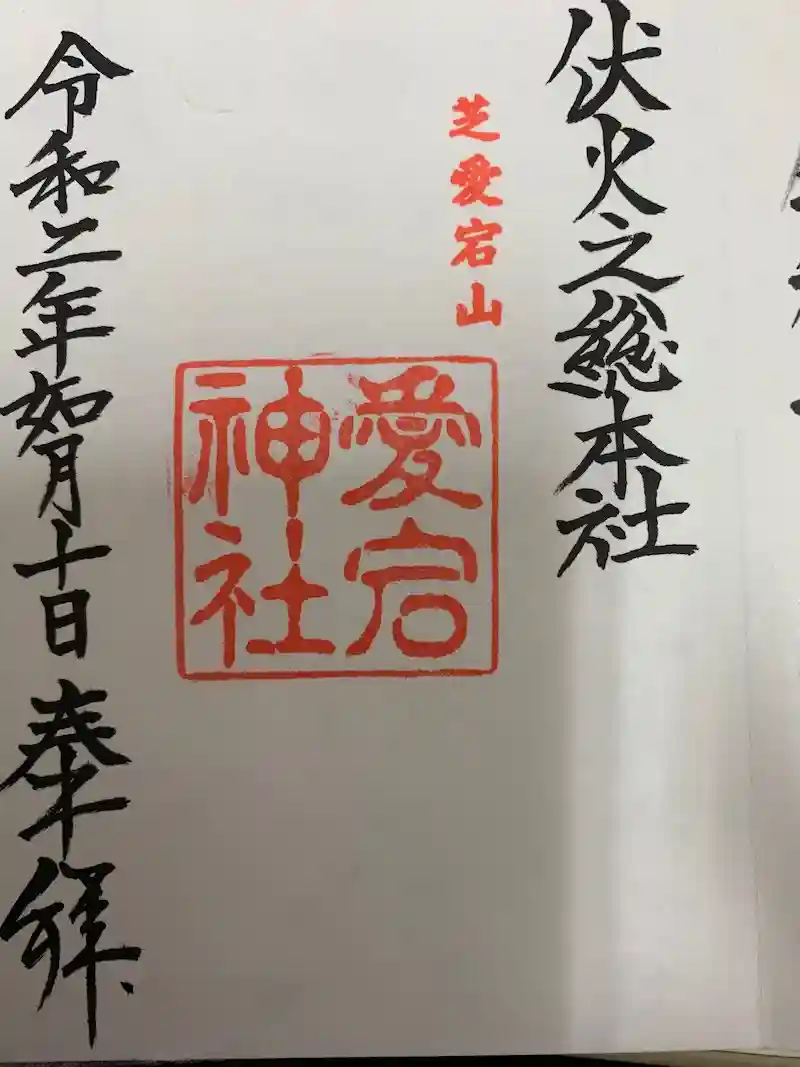 伏火之総本社
芝愛宕山
愛宕
神社
令和二年如月十日奉拝